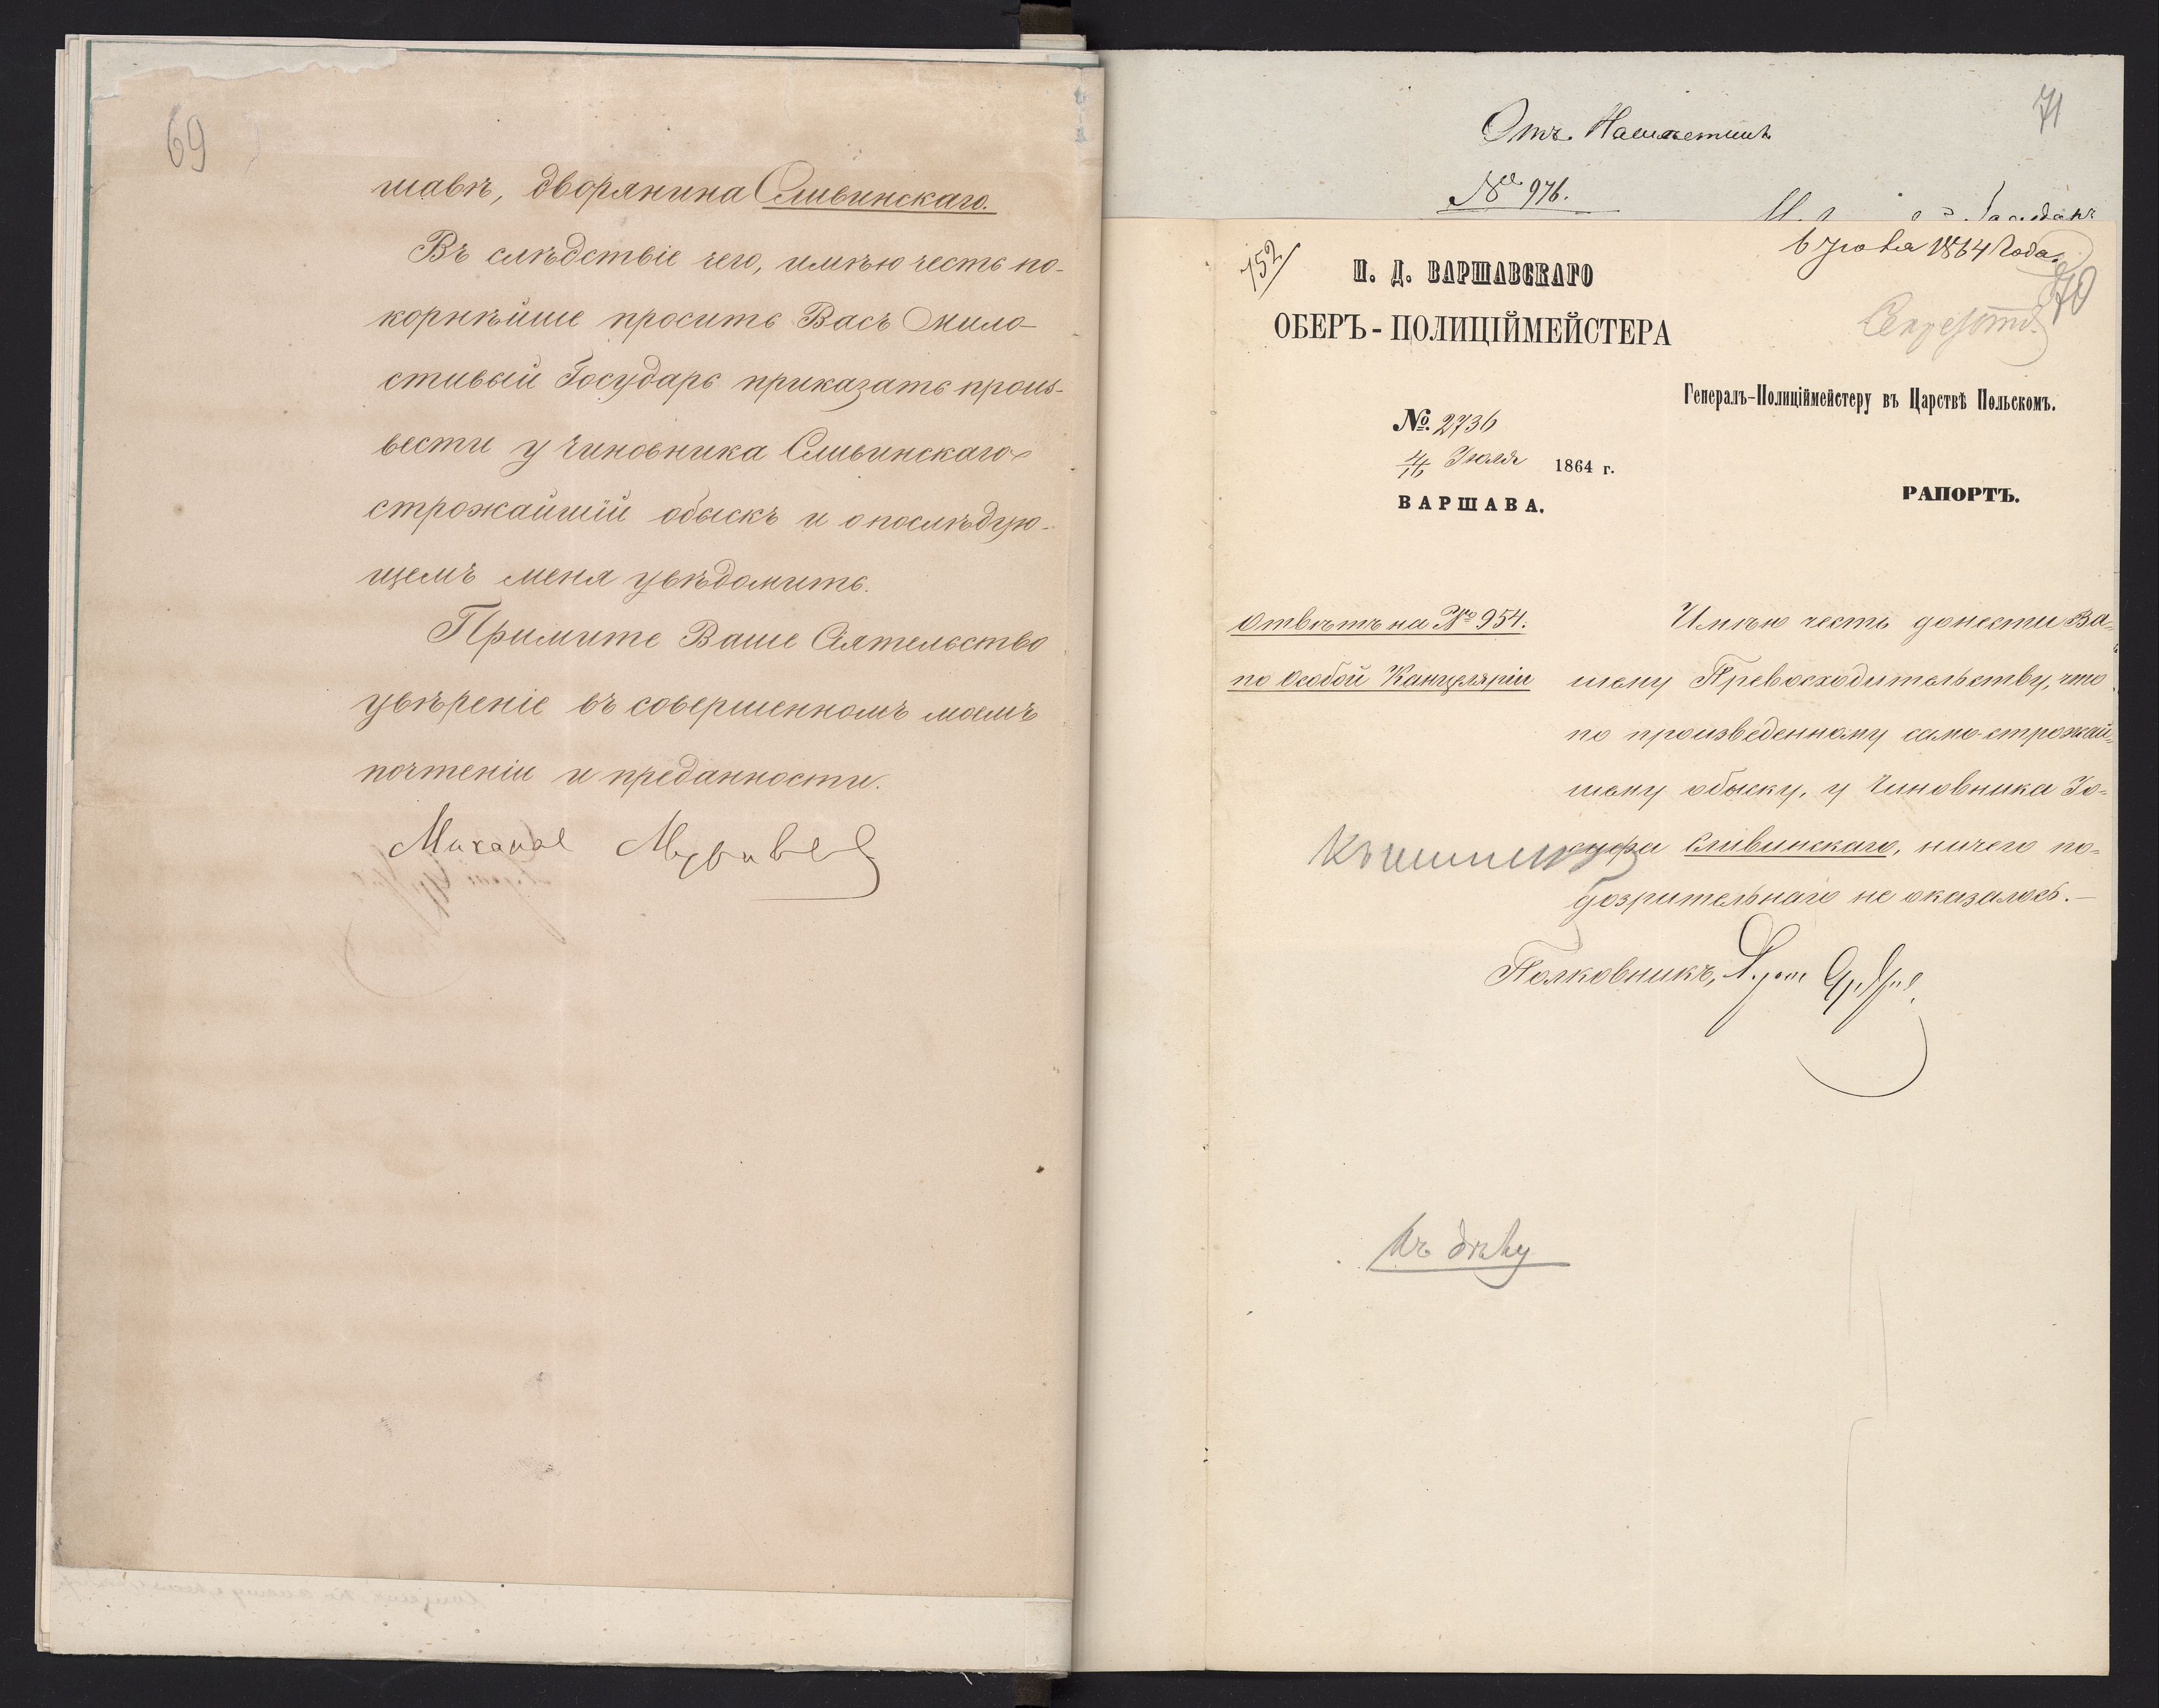 69
шавѣ, дворянина Сливинскаго.
Въ слѣдствіе чего, имѣю честь по-
корнѣйше просить Васъ Мило-
стивый Государь приказать произ-
вести у чиновника Сливинскаго
строжайшій обыскъ и о послѣдую-
щемъ меня увѣдомить.
Примите Ваше Сіятельство
увѣреніе въ совершенномъ моемъ
почтеніи и преданности.
Михаилъ Муравьевъ
71
Отъ
№ 976.
152
И. Д. ВАРШАВСКАГО
ОБЕРЪ-ПОЛИЦІЙМЕЙСТЕРА
№. 2736
4/16 Іюля 1864 г.
ВАРШАВА.
6 Іюля 1864 года.
70
Секретно.
Генералъ-Полиціймейстеру въ Царствѣ Польскомъ.
РАПОРТЪ.
Отвѣтъ на № 954.
по Особой Канцеляріи
Имѣю честь донести Ва-
шему Превосходительству, что
по произведенному само-строжай-
шему обыску, у Чиновника Іо-
Сливинскаго, ничего по-
дозрительнаго не оказалось.—
Полковникъ,
Къ дѣлу